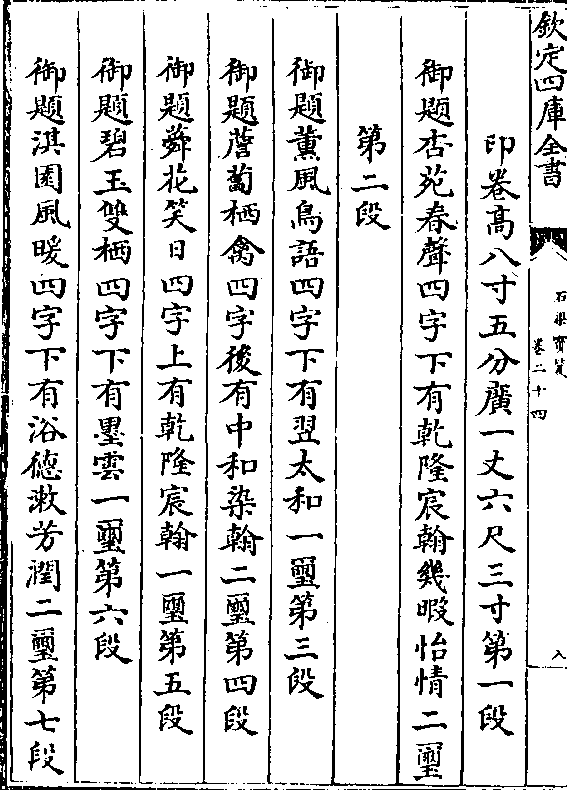 欽定四庫全書
石渠寶笈
卷二十四
八
印卷高八寸五分廣一丈六尺三寸第一段
御題杏苑春聲四字下有乾隆宸翰幾暇怡情二璽
第二段
御題薰風鳥語四字下有翌太和一璽第三段
御題薝蔔栖禽四字後有中和染翰二璽第四段
御題蕣花笑日四字上有乾隆宸翰一璽第五段
御題碧玉雙栖四字下有墨雲一璽第六段
御題淇園風暖四字下有浴德漱芳潤二璽第七段